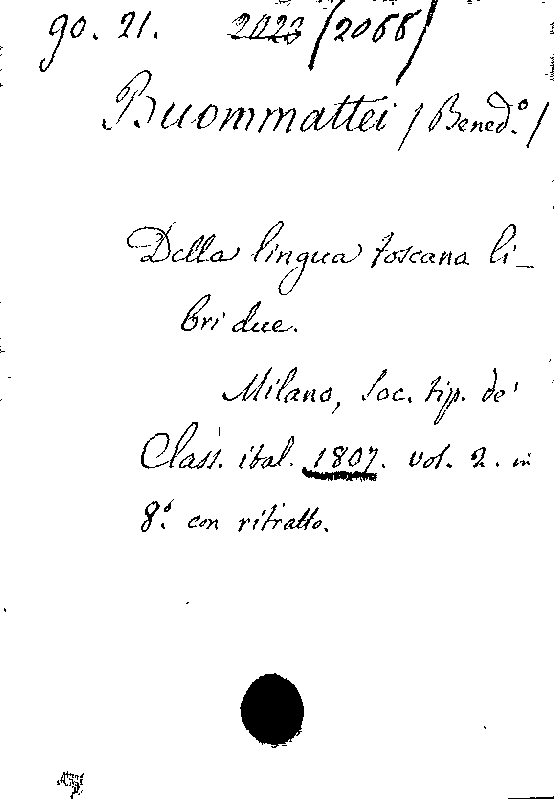 90. 21. 2023 (2066)
Buommattei (Bened.º)
Della lingua toscana li-
bri due.
Milano, Soc. tip. de'
Class. ital. 1807. vol. 2. in
8.º con ritratto.